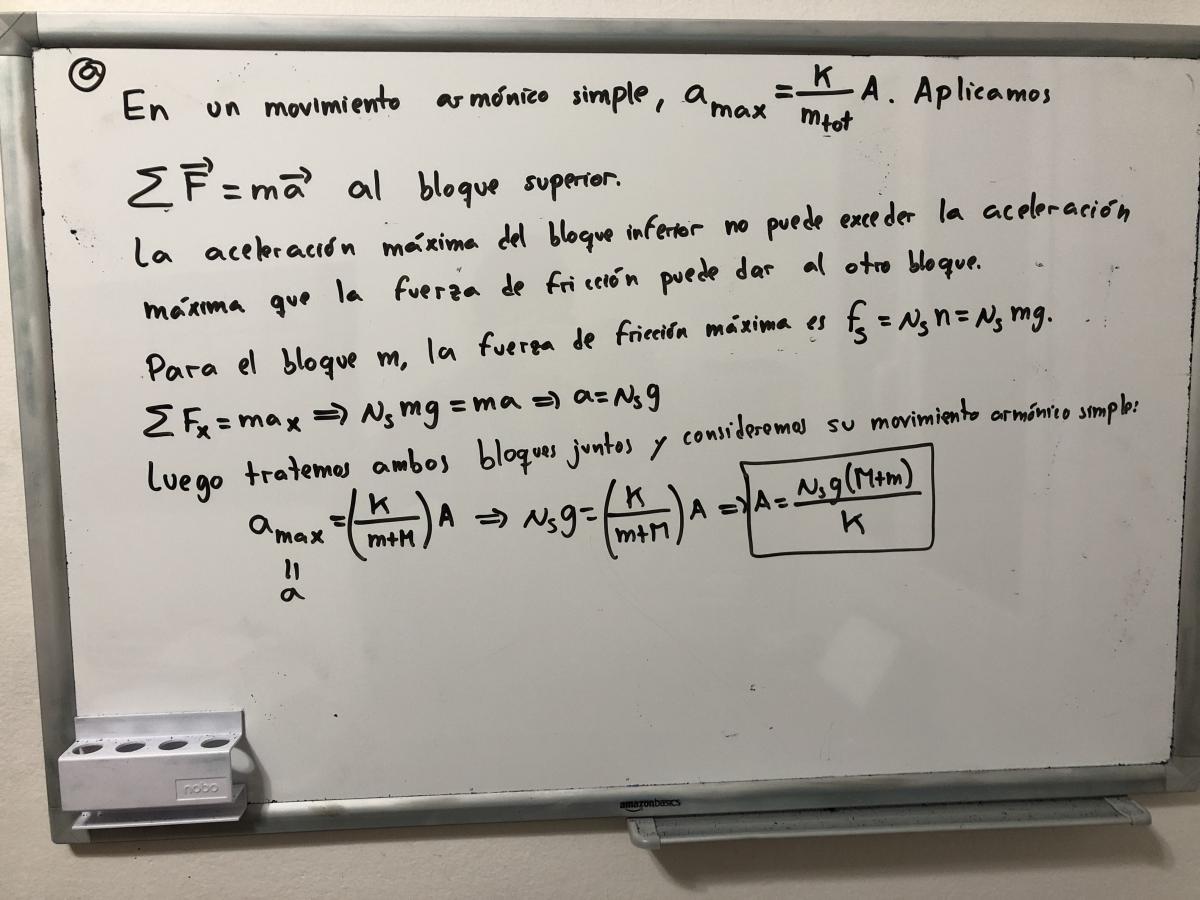 ⓐ
En un movimiento armónico simple, a_max = K/m_tot A. Aplicamos
∑F⃗ = ma⃗ al bloque superior.
La aceleración máxima del bloque inferior no puede exceder la aceleración
máxima que la fuerza de fricción puede dar al otro bloque.
Para el bloque m, la fuerza de fricción máxima es f_s = μ_s n = μ_s mg.
∑F_x = ma_x ⇒ μ_s mg = ma ⇒ a = μ_s g
Luego tratemos ambos bloques juntos y consideremos su movimiento armónico simple:
a_max = (K/(m+M)) A ⇒ μ_s g = (K/(m+M)) A ⇒ A = μ_s g(M+m)/K
=
a
nobo
amazonbasics